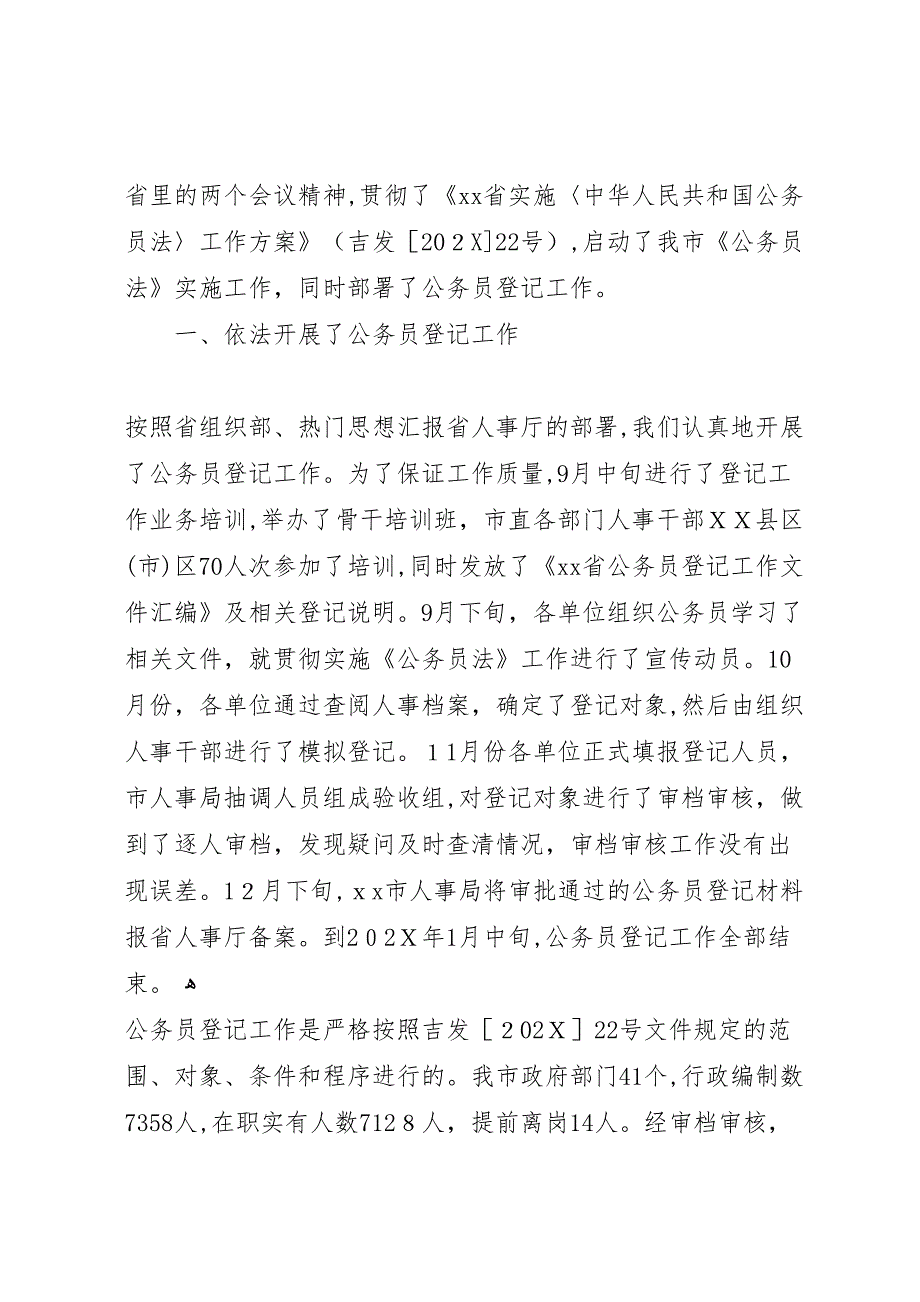 省里的两个会议精神,贯彻了《xx省实施〈中华人民共和国公务
员法〉工作方案》（吉发［20２X]22号）,启动了我市《公务员
法》实施工作，同时部署了公务员登记工作。
一、依法开展了公务员登记工作
按照省组织部、热门思想汇报省人事厅的部署,我们认真地开展
了公务员登记工作。为了保证工作质量,9月中旬进行了登记工
作业务培训,举办了骨干培训班，市直各部门人事干部ＸＸ县区
(市)区70人次参加了培训,同时发放了《xx省公务员登记工作文
件汇编》及相关登记说明。9月下旬，各单位组织公务员学习了
相关文件，就贯彻实施《公务员法》工作进行了宣传动员。10
月份，各单位通过查阅人事档案，确定了登记对象,然后由组织
人事干部进行了模拟登记。１1月份各单位正式填报登记人员，
市人事局抽调人员组成验收组,对登记对象进行了审档审核，做
到了逐人审档，发现疑问及时查清情况，审档审核工作没有出
现误差。1２月下旬,ｘx市人事局将审批通过的公务员登记材料
报省人事厅备案。到2０２Ｘ年1月中旬,公务员登记工作全部结
束。 ﻫ
公务员登记工作是严格按照吉发［２02Ｘ］22号文件规定的范
围、对象、条件和程序进行的。我市政府部门41个,行政编制数
7358人,在职实有人数712８人，提前离岗14人。经审档审核，